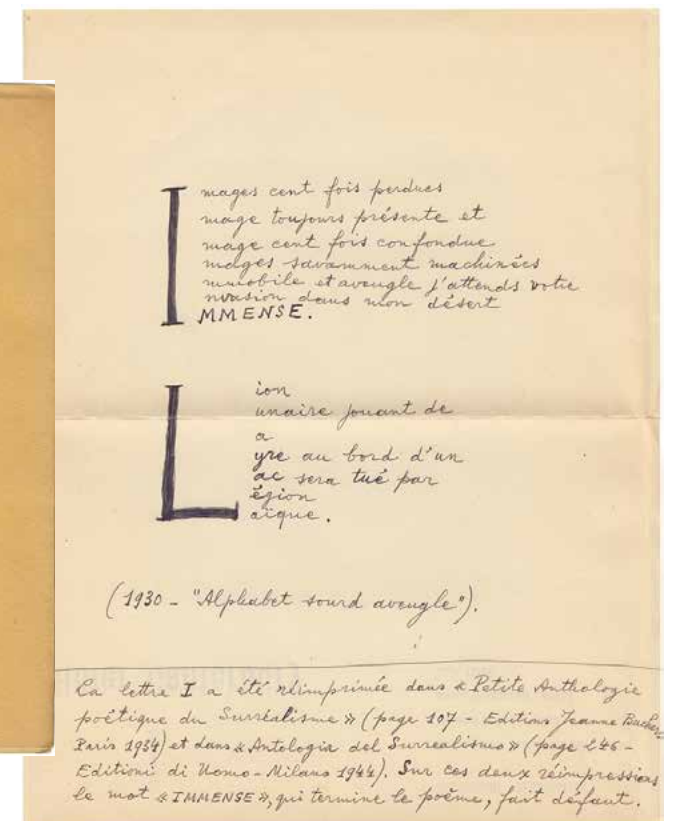 I
mages cent fois perdues
mage toujours présente et
mage cent fois confondue
mages savamment machinées
mmobile et aveugle j'attends votre
nvasion dans mon désert
MMENSE.
L
ion
unaire jouant de
a
yre au bord d'un
ac sera tué par
égion
aïque.
(1930 - "Alphabet sourd aveugle").
La lettre I a été réimprimée dans « Petite Anthologie
poétique du Surréalisme » (page 107 - Editins Jeanne Bucher,
Paris 1934) et dans « Antologia del Surrealismo » (page 246 -
Editioni di Uomo - Milano 1944). Sur ces deux réimpressions
le mot « IMMENSE », qui termine le poème, fait défaut.